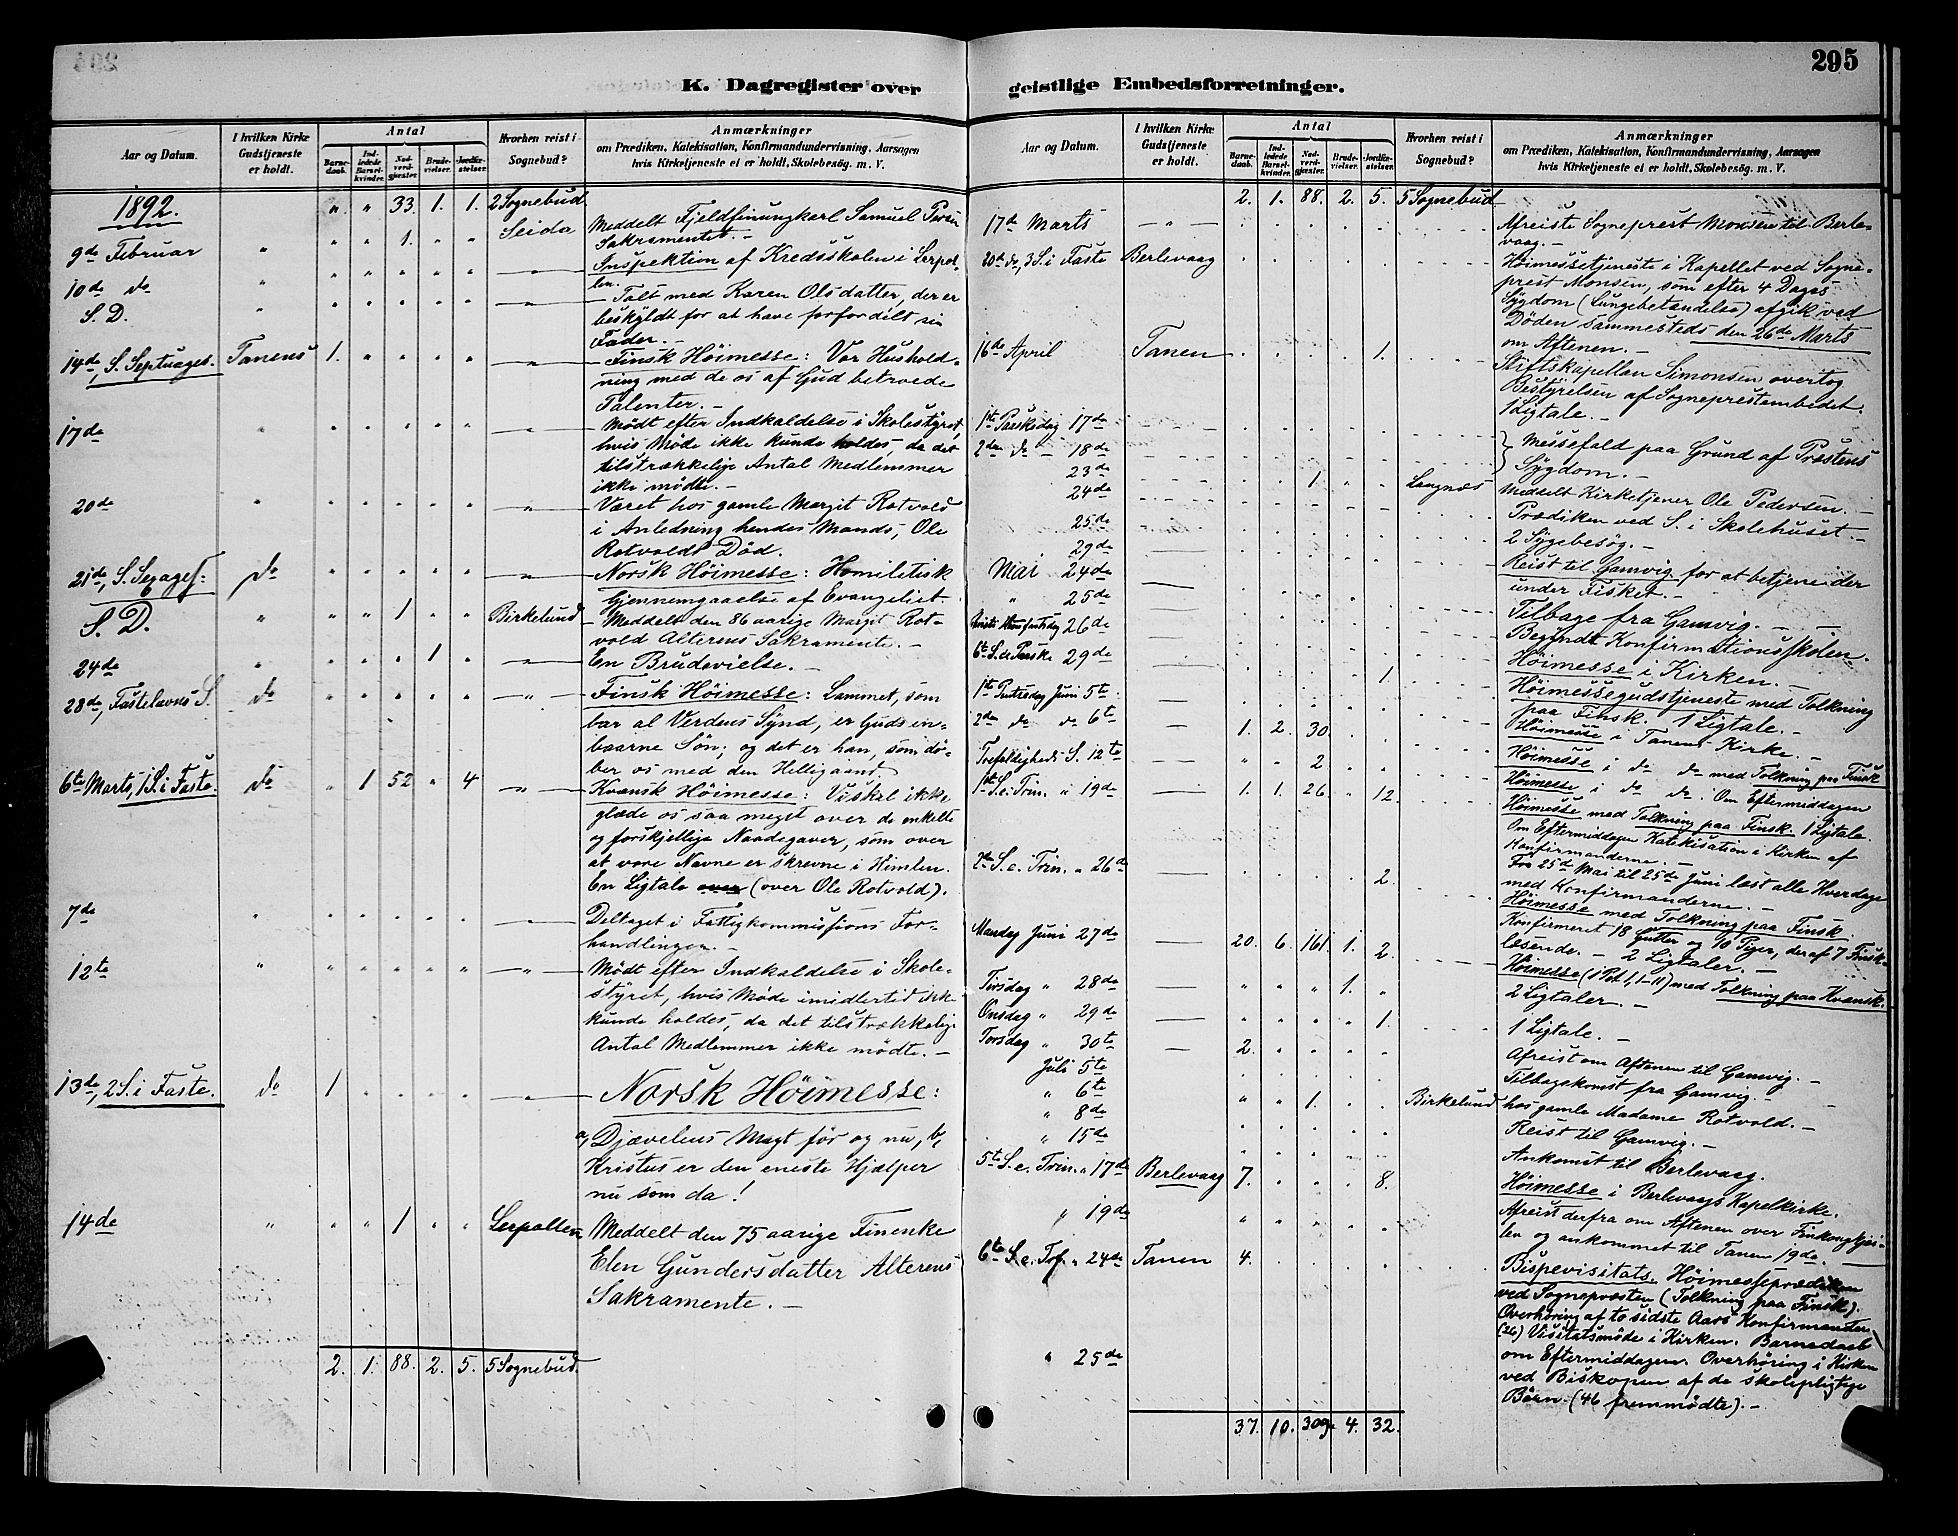 295
K. Dagregister over
geistlige Embedsforretninger.
Aar og Datum.
I hvilken Kirke Gudstjeneste er holdt.
Antal
Barnedaab.
Indledede Barselkvinder.
Nadverdgjester.
Brudevielser.
Jordfæstelser.
Hvorhen reist i Sognebud?
Anmærkninger
om Prædiken, Katekisation, Konfirmandundervisning, Aarsagen
hvis Kirketjeneste ei er holdt, Skolebesøg. m. V.
1892. " " 33. 1. 1. 2 Sognebud
9de Februar " " " 1. " " Seida Meddelt Fjeldfinungkarl Samuel
Sakramentet. –
10de do " Inspektion af Kredsskolen i Serpol-
len.
S. D. " Talt med Karen Olsdatter, der er
beskyldt for at have forfordelt sin
Fader. –
14de, S. Septuages. Tanens 1. " " " " Finsk Höimesse: Vor Hushold-
ning med de os af Gud betroede
Talenter. –
17de " Mödt efter Indkaldelse i Skolestyret,
hvis Möde ikke kunde holdes, da det
tilstrækkelige Antal Medlemmer
ikke mödte. –
20de " Været hos gamle Margit Rotvold
i Anledning hendes Mands, Ole
Rotvolds Död.
21de, S. Sexages: do Norsk Höimesse: Homiletisk
Gjennemgaaelse af Evangeliet.
S. D. " " " 1 " " Birkelund Meddelt den 86 aarige Margit Rot-
vold Alterens Sakramente. –
24de " " " " 1 " En Brudevielse. –
28de, Fastelavns S. do Finsk Höimesse: Lammet, som
bar al Verdens Synd, er Guds en-
baarne Sön; og det er han, som dö-
ber os med den Helligaand.
6te Marts, 1 S. i Faste. do " 1 52 " 4 Kvænsk Höimesse: Vi skal ikke
glæde os saa meget over de enkelte
og forskjellige Naadegaver, som over
at vore Navne er skrevne i Himlen.
En Ligtale over (over Ole Rotvold).
7de " Deltaget i Fattigkommissions For-
handlingen. –
12te " Mödt efter Indkaldelse i Skole-
styret, hvis Möde imidlertid ikke
kunde holdes, da det tilstrækkelige
Antal Medlemmer ikke mödte. –
13de, 2 S. i Faste. do 1 " " " " Norsk Höimesse:
a, Djævelens Magt för og nu, b,
Kristus er den eneste Hjælper
nu som da!
14de " " " 1 " " Serpollen Meddelt den 75 aarige Finenke
Elen Gundersdatter Alterens
Sakramente. –
2. 1. 88. 2. 5. 5 Sognebud.
Aar og Datum.
I hvilken Kirke Gudstjeneste er holdt.
Antal
Barnedaab.
Indledede Barselkvinder.
Nadverdgjester.
Brudevielser.
Jordfæstelser.
Hvorhen reist i Sognebud?
Anmærkninger
om Prædiken, Katekisation, Konfirmandundervisning, Aarsagen
hvis Kirketjeneste ei er holdt, Skolebesøg. m. V.
2. 1. 88. 2. 5. 5 Sognebud
17de Marts – " – Afreiste Sogneprest Monsen til Berle-
vaag. –
20de do, 3 S. i Faste Berlevaag Höimessetjeneste i Kapellet ved Sogne-
prest Monsen, som efter 4 Dages
Sygdom (Lungebetændelse) afgik ved
Döden sammesteds den 26de Marts
om Aftenen. –
16de April Tanen 1. Stiftskapellan Simonsen overtog
Bestyrelsen af Sogneprestembedet.
1 Ligtale. –
1ste Paaskedag 17de
2den do – 18de Messefald paa Grund af Præstens
Sygdom. –
23de
24de 1 " " Langnæs Meddelt Kirketjener Ole Pedersen. –
Prædiken ved S. i Skolehuset –
25de 2 Sygebesög. –
29de Reist til Gamvig for at betjene der
under Fisket. –
Mai 24de Tilbage fra Gamvig. –
" 25de Begyndt Konfirmationsskolen.
26de Höimesse i Kirken. –
6te S. e. Paaske 29de 1 Höimessegudstjeneste med Tolkning
paa Finsk. 1 Ligtale. –
1ste Pintsedag Juni 5te Höimesse i Tanens Kirke. –
2den do do 6te 1. 2. 30. Höimesse i do do med Tolkning paa Finsk
Trefoldigheds S. 12te " " 2 Höimesse i do do. Om Eftermiddagen
1ste S. e. Trin. " 19de 1. 1. 26. " 12. Höimesse med Tolkning paa Finsk. 1 Ligtale
Om Eftermiddagen Katekisation i Kirken af
Konfirmanderne. –
Fra 25de Mai til 25de Juni læst alle Hverdage
med Konfirmanderne. –
2den S. e. Trin. " 26de 2. Höimesse med Tolkning paa Finsk.
Konfirmeret 18 Gutter og 10 Piger, deraf 7 Finsk-
læsende. – 2 Ligtaler. –
Mandag Juni 27de 20. 6. 161. 1. 2. Höimesse (1 Pet. 1, 1–11) med Tolkning paa Kvænsk.
2 Ligtaler. –
Tirsdag " 28de " " " 1. "
Onsdag " 29de " " " " 1. 1 Ligtale. –
Torsdag " 30te 2. Afreist om Aftenen til Gamvig. –
Juli 5te Tilbagekomst fra Gamvig. –
" 6te " " 1. Birkelund hos gamle Madame Rotvold. –
" 8de Reist til Gamvig. –
" 15de Ankomst til Berlevaag.
5te S. e. Trin. " 17de Berlevaag 7. " " " 8. Höimesse i Berlevaags Kapelkirke.
" 19de Afreist derfra om Aftenen over Finkongkjei-
len og ankommet til Tanen 19de. –
6te S. e. Tref. " 24de Tanen 4. Bispevisitats. Höimesseprædiken
ved Sognepræsten (Tolkning paa Finsk).
Overhöring af to sidste Aars Konfirmander
(26) Visitatsmöde i Kirken. Barnedaab
" 25de om Eftermiddagen. Overhöring i Kirken
ved Biskopen af de skolepligtige
Börn (46 fremmödte). –
37. 10. 309. 4. 32.